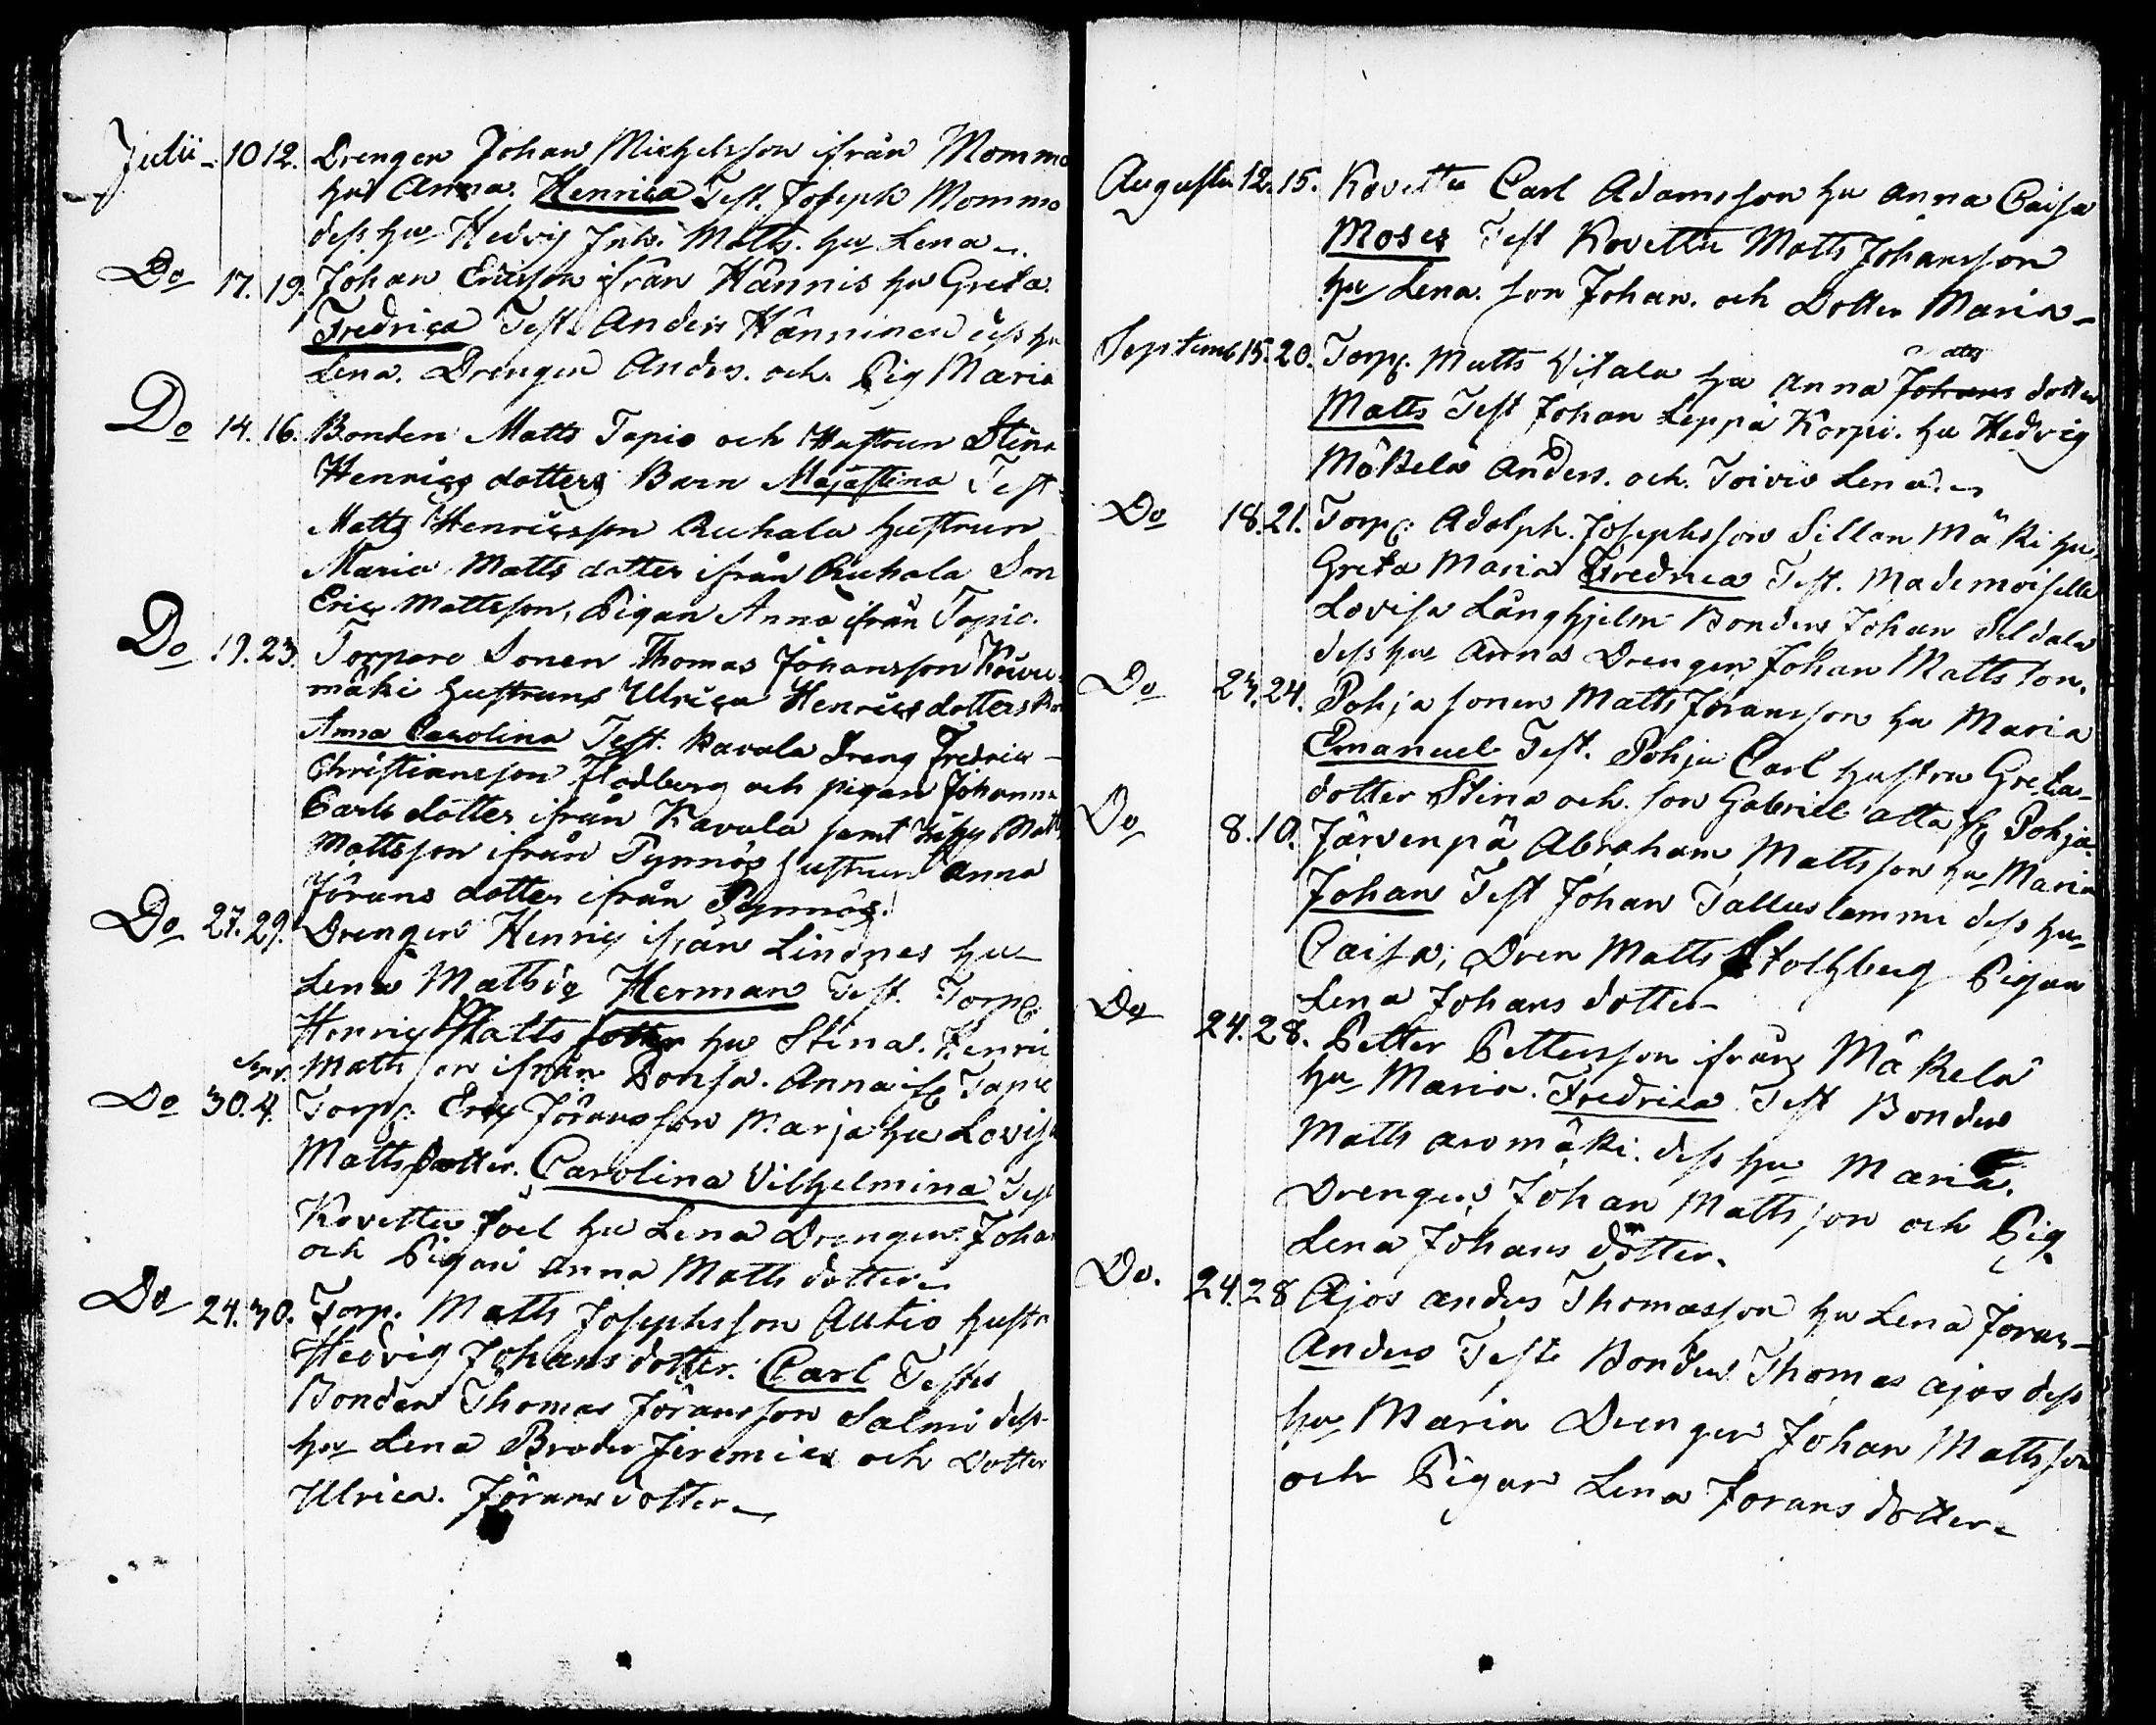 Julii - 10 12. Drengen Johan Michelsson ifrån Mommo
hu Anna. Henrica Test. Joseph Mommo
dess hu Hedvig Inh. Matts. hu Lena
Do 17. 19. Johan Ericsson ifrån Hännis hu Greta.
Fredrica Test. Anders Hänninen dess hu
Lena. Drengen Anders. och. Pig Maria
Do 14. 16. Bonden Matts Tapio och Hustrun Stina
Henrics dotters Barn Majastina Test
Matts Henricsson Ruhala hustrun
Maria Matts dotter ifrån Ruhala Son
Eric Mattsson, Pigan Anna ifrån Tapio.
Do 19. 23. Torpare Sonen Thomas Johansson
mäki hustruns Ulrica Henrics dotters
Anna Carolina Test. Kavala Dreng Fredric
Christiansson Flodberg och pigan Johanna
Carls dotter ifrån Kavala samt
Mattsson ifrån Pynnös hustrun Anna
Jörans dotter ifrån Pynnös.
Do 27. 29. Drengen Henric ifrån Lindnes hu
Lena Matts dr Herman Test. Torp.
Henric Matts hu Stina. Henric
Matts son ifrån Ponsa. Anna ifr Tapio
Do 30. 4. Torp. Eric Jöransson Marja hu Lovisa
Mattsdotter. Carolina Vilhelmina Test
Kovettu Joel hu Lena Drengen Johan
och Pigan Anna Matts dotter
Do 24. 30. Torp. Matts Josephsson Autio hustr
Hedvig Johans dotter. Carl Testes
Bonden Thomas Jöransson Salmi dess
hu Lena Broder Jeremias och Dotter
Ulrica. Jöransdotter
Augustii 12. 15. Kovettu Carl Adamsson hu Anna Caisa
Moses Test Kovettu Matts Johansson
hu Lena. son Johan. och Dotter Maria
Septemb 15. 20. Torp. Matts Vitala hu Anna Johans dotter
Matts Test Johan Leppä Korpi. hu Hedvig
Mäkelä Anders. och. Toivio Lena.
Do 18. 21. Torp. Adolph. Josephsson Sillan Mäki hu
Greta Maria Fredrica Test. Mademoiselle
Lovisa Långhjelm Bonden Johan Seldala
dess hu Anna Drengen Johan Matts son.
Do 23. 24. Pohja sonen Matts Jöransson hu Maria
Emanuel Test. Pohja Carl hustru Greta
dotter Stina och. son Gabriel alla fr Pohja.
Do 8. 10. Järvenpä Abraham Mattsson hu Maria
Johan Test Johan Talluslammi dess hu
Caisa, Dren Matts Stolhberg Pigan
Lena Johans dotter
Do 24. 28. Petter Pettersson ifrån Mäkelä
hu Maria. Fredrica Test Bonden
Matts aromäki. dess hu Maria.
Drengen Johan Mattsson och Pig
Lena Johans dotter.
Do. 24. 28 Ajos Anders Thomasson hu Lena Jörans
Anders Teste Bonden Thomas ajos dess
hu Maria Drengen Johan Mattsson
och Pigan Lena Jorans dotter